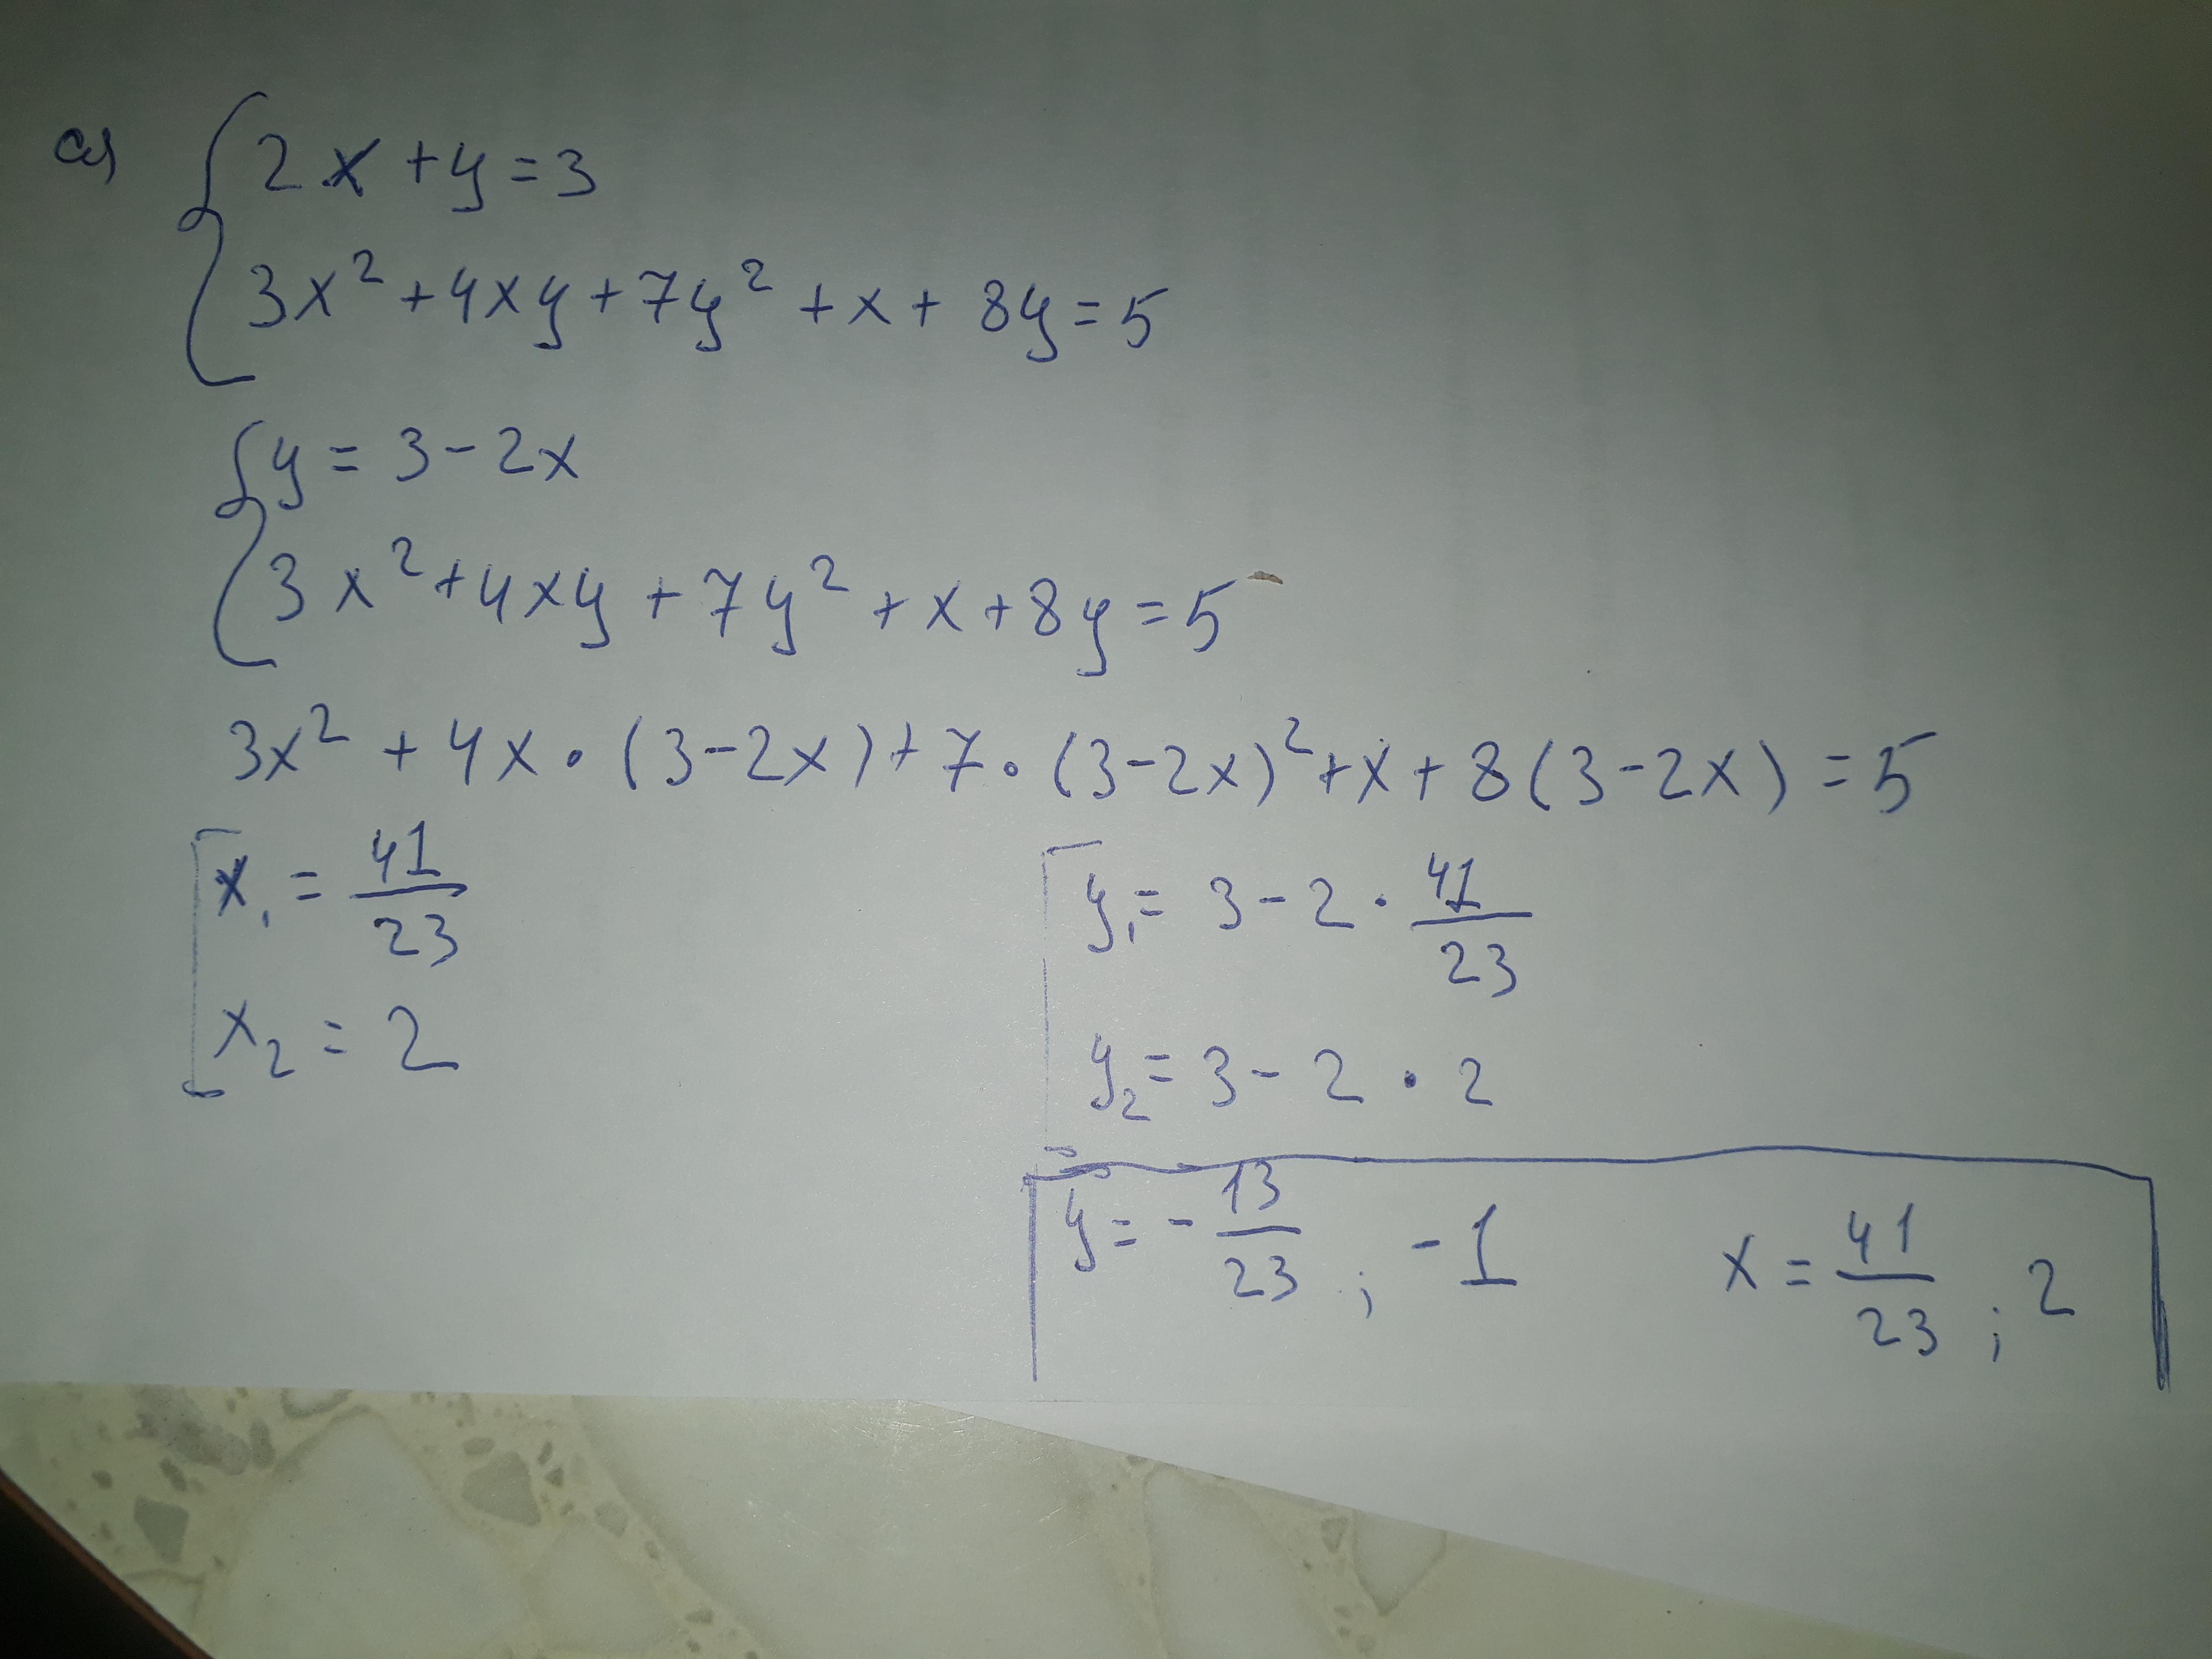 a) 2x + y = 3
3x² + 4xy + 7y² + x + 8y = 5
y = 3 - 2x
3x² + 4xy + 7y² + x + 8y = 5
3x² + 4x · (3 - 2x) + 7 · (3 - 2x)² + x + 8(3 - 2x) = 5
x₁ = 41/23
x₂ = 2
y₁ = 3 - 2 · 41/23
y₂ = 3 - 2 · 2
y = - 13/23 ; -1 x = 41/23 ; 2